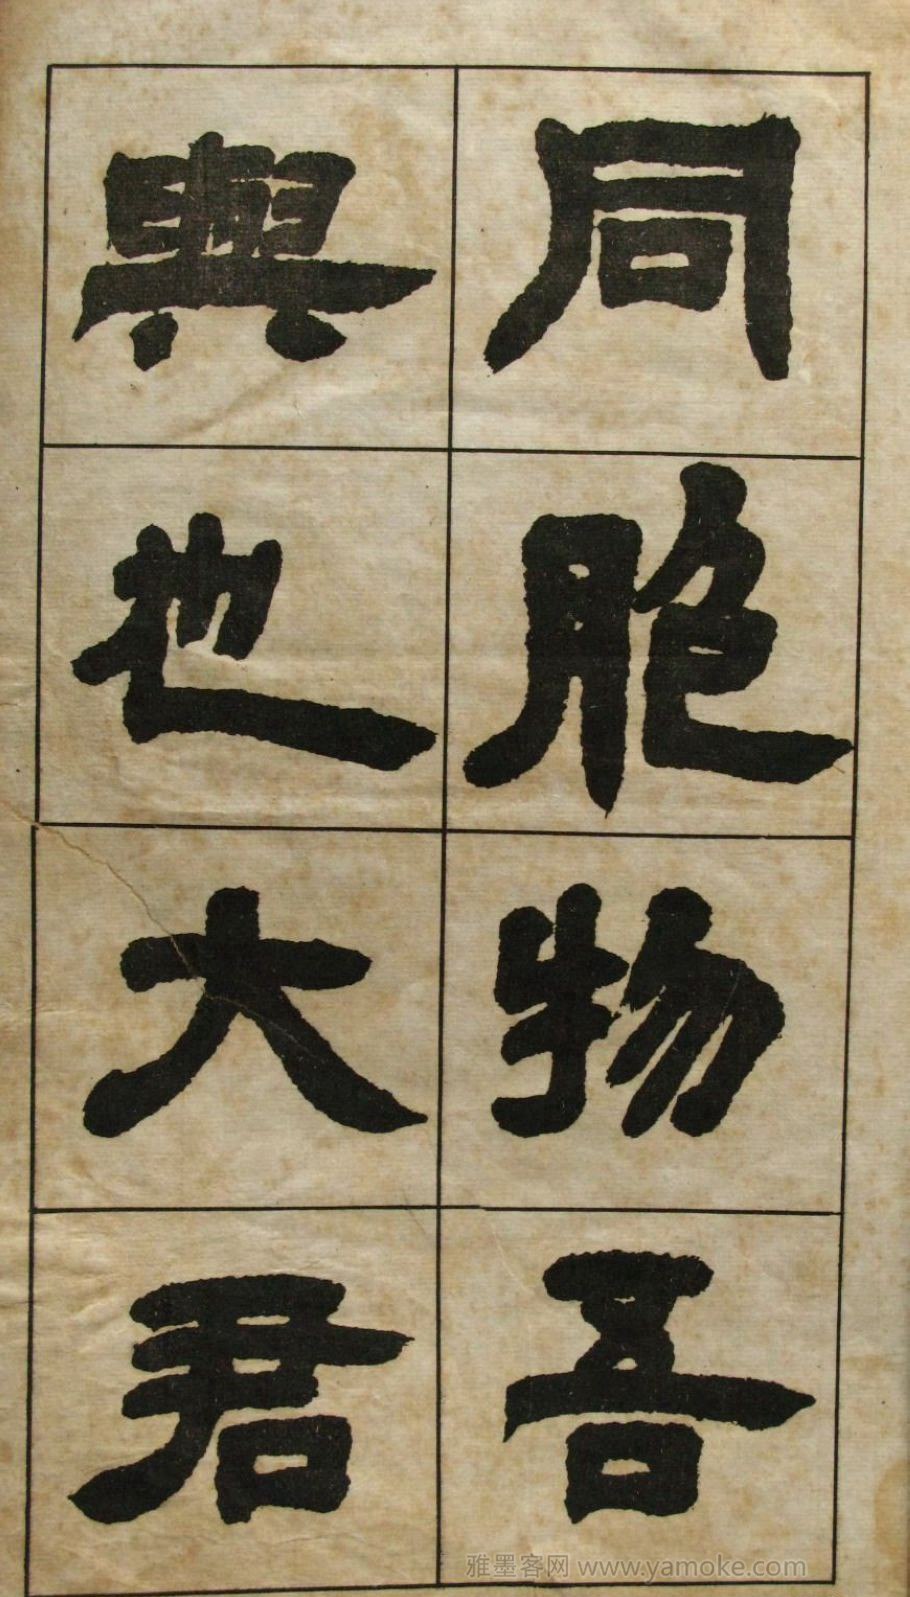 同胞物吾
與也大君
雅墨客网 www.yamoke.com